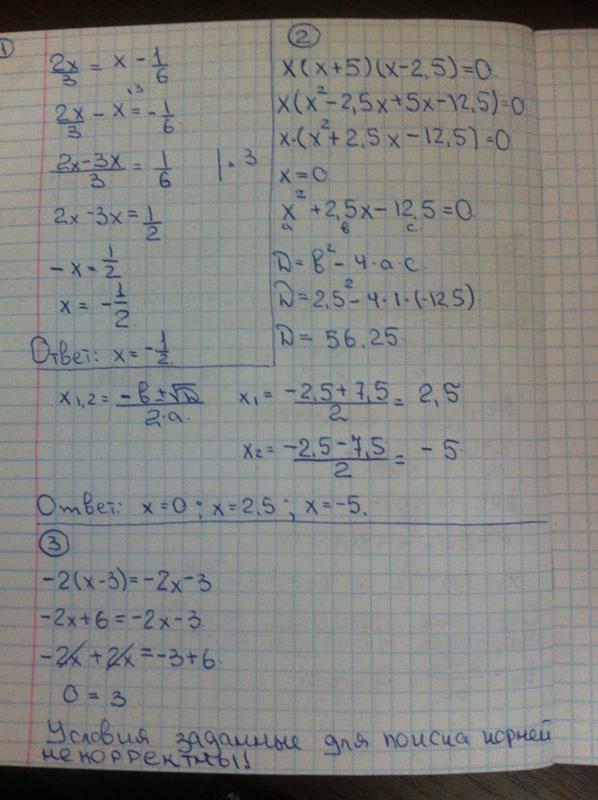 1
2x/3 = x - 1/6
2x/3 - x ·3 = - 1/6
(2x-3x)/3 = 1/6 | · 3
2x - 3x = 1/2
-x = 1/2
x = - 1/2
Ответ: x = - 1/2
2
x(x+5)(x-2,5)=0
x(x²-2,5x+5x-12,5)=0
x·(x²+2,5x-12,5)=0
x=0
x²+2,5x-12,5=0
a в c
D=в²-4·a·c
D=2,5²-4·1·(-12,5)
D= 56,25
x1,2= (-в±√D)/(2·a)
x1= (-2,5+7,5)/2 = 2,5
x2= (-2,5-7,5)/2 = -5
Ответ: x=0; x=2,5; x=-5.
3
-2(x-3)=-2x-3
-2x+6=-2x-3
-2x+2x=-3+6
0=3
Условия заданные для поиска корней
не корректны!